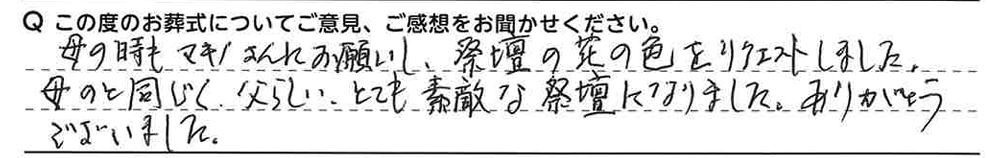 Q この度のお葬式についてご意見、ご感想をお聞かせください。
母の時も マキノさんにお願いし、祭壇の花の色をリクエストしました。
母のと同じく、父らしい、とても素敵な祭壇になりました。ありがとう
ございました。